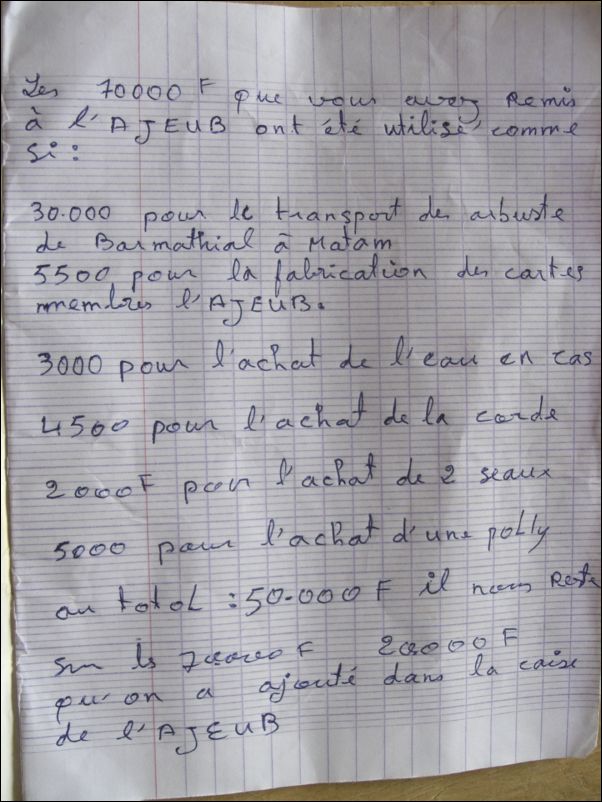 Les 70000 F que vous avez Remis
à l'AJEUB ont été utilisé comme
si :
30.000 pour le transport des arbuste
de Barmathial à Matam
5500 pour la fabrication des cartes
membres l'AJEUB.
3000 pour l'achat de l'eau en cas
4500 pour l'achat de la corde
2000F pour l'achat de 2 seaux
5000 pour l'achat d'une polly
au totoL : 50.000 F il nous Reste
Sur les 70000 F 20000 F
qu'on a ajouté dans la caise
de l'AJEUB